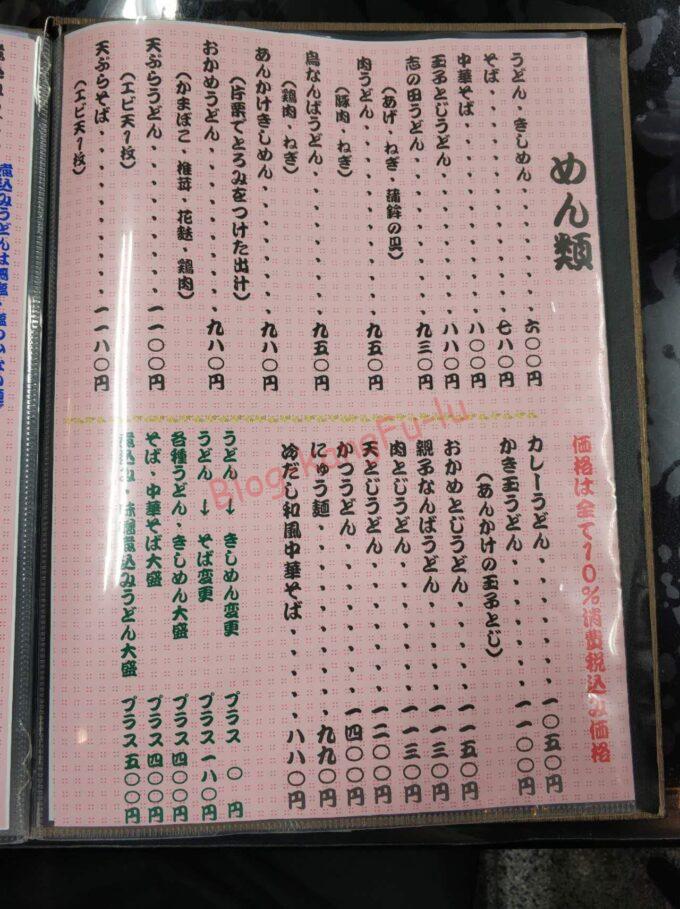 めん類
うどん・きしめん、、、、、、、、、六〇〇円
そば、、、、、、、、、、、、、、七八〇円
中華そば、、、、、、、、、、、、八〇〇円
玉子とじうどん、、、、、、、、、八八〇円
志の田うどん、、、、、、、、、、九三〇円
（あげ・ねぎ・蒲鉾の具）
肉うどん、、、、、、、、、、、、九五〇円
（豚肉・ねぎ）
鳥なんばうどん、、、、、、、、、九五〇円
（鶏肉・ねぎ）
あんかけきしめん、、、、、、、、九八〇円
（片栗でとろみをつけた出汁）
おかめうどん、、、、、、、、、、九八〇円
（かまぼこ・椎茸・花麩・鶏肉）
天ぷらうどん、、、、、、、、、一一〇〇円
（エビ天1枚）
天ぷらそば、、、、、、、、、、一一八〇円
（エビ天1枚）
価格は全て10%消費税込み価格
カレーうどん、、、、、、、、、一〇五〇円
かき玉うどん、、、、、、、、、一一〇〇円
（あんかけの玉子とじ）
おかめとじうどん、、、、、、、一一五〇円
親子なんばうどん、、、、、、、一一三〇円
肉とじうどん、、、、、、、、、一一三〇円
天とじうどん、、、、、、、、、一二〇〇円
かつうどん、、、、、、、、、、一四〇〇円
にゅう麺、、、、、、、、、、、、九九〇円
冷だし和風中華そば、、、、、、、八八〇円
うどん → きしめん変更 プラス 〇 円
うどん → そば変更 プラス一八〇円
各種うどん・きしめん大盛 プラス四〇〇円
そば・中華そば大盛 プラス四〇〇円
煮込み・味噌煮込みうどん大盛 プラス五〇〇円
Blog:kangFu-lu